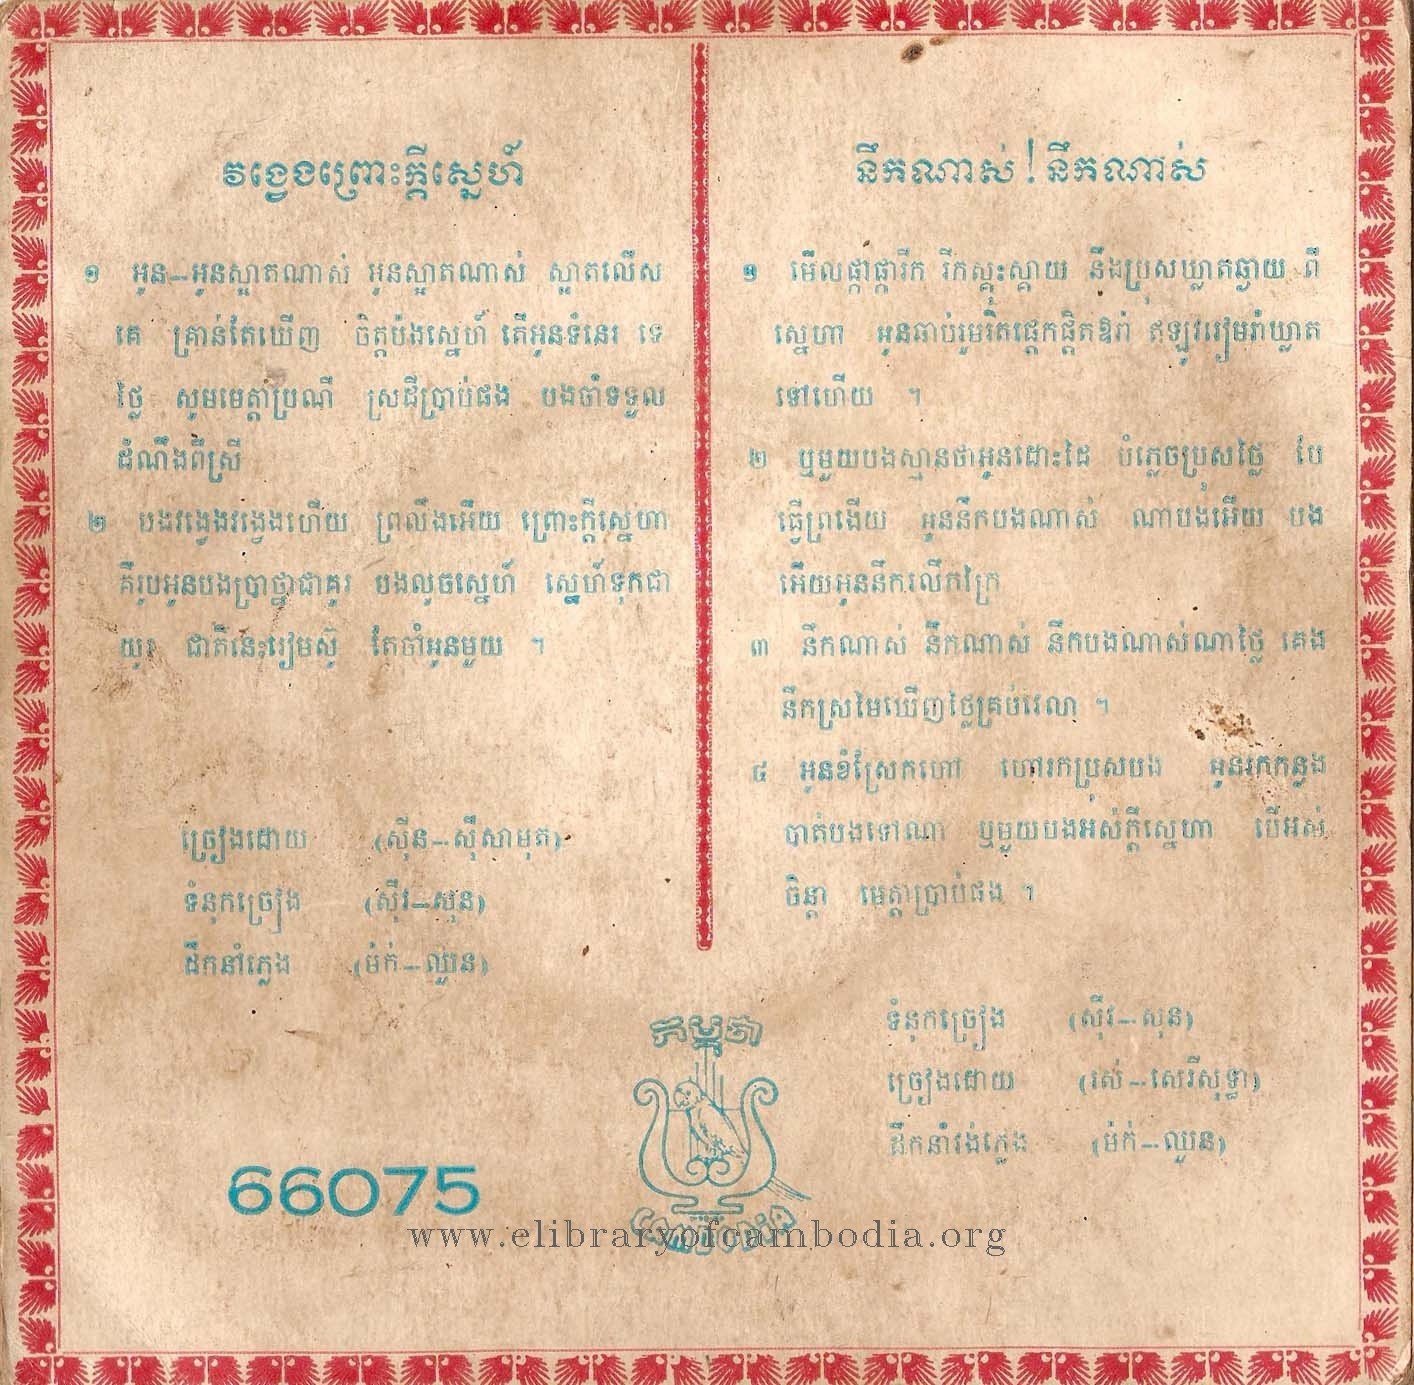 វង្វេងព្រោះក្តីស្នេហ៍
១ អូន-អូនស្អាតណាស់ អូនស្អាតណាស់ ស្អាតលើស
គេ គ្រាន់តែឃើញ ចិត្តបងស្នេហ៍ តើអូនទំនេរ ទេ
ថ្លៃ សូមមេត្តាប្រណី ស្រដីប្រាប់ផង បងចាំទទួល
ដំណឹងពីស្រី
២ បងវង្វេងវង្វេងហើយ ព្រលឹងអើយ ព្រោះក្តីស្នេហា
គឺរូបអូនបងប្រាថ្នាជាគូរ បងលួចស្នេហ៍ ស្នេហ៍ទុកជា
យូរ ជាតិនេះរៀមស៊ូ តែចាំអូនមួយ ។
ច្រៀងដោយ (ស៊ីន-ស៊ីសាមុត)
ទំនុកច្រៀង (ស៊ីវ-សុន)
ដឹកនាំភ្លេង (ម៉ក់-ឈួន)
66075
នឹកណាស់! នឹកណាស់
១ មើលផ្កាផ្ការីក រីកស្គុះស្គាយ នឹងប្រុសឃ្លាតឆ្ងាយ ពី
ស្នេហា អូនធ្លាប់រួមរឹតផ្តេកផ្តិតឱរ៉ា ឥឡូវរៀមរ៉ាឃ្លាត
ទៅហើយ ។
២ ឬមួយបងស្មានថាអូនដោះដៃ បំភ្លេចប្រុសថ្លៃ បែ
ធ្វើព្រងើយ អូននឹកបងណាស់ ណាបងអើយ បង
អើយអូននឹករលឹកក្រៃ
៣ នឹកណាស់ នឹកណាស់ នឹកបងណាស់ណាថ្លៃ គេង
នឹកស្រមៃឃើញថ្លៃគ្រប់វេលា ។
៤ អូនខំស្រែកហៅ ហៅរកប្រុសបង អូនរកកន្លង
បាត់បងទៅណា ឬមួយបងអស់ក្តីស្នេហា បើអស់
ចិន្តា មេត្តាប្រាប់ផង ។
ទំនុកច្រៀង (ស៊ីវ-សុន)
ច្រៀងដោយ (រស់-សេរីសុទ្ធា)
ដឹកនាំវង់ភ្លេង (ម៉ក់-ឈួន)
កម្ពុជា
www.elibraryofcambodia.org